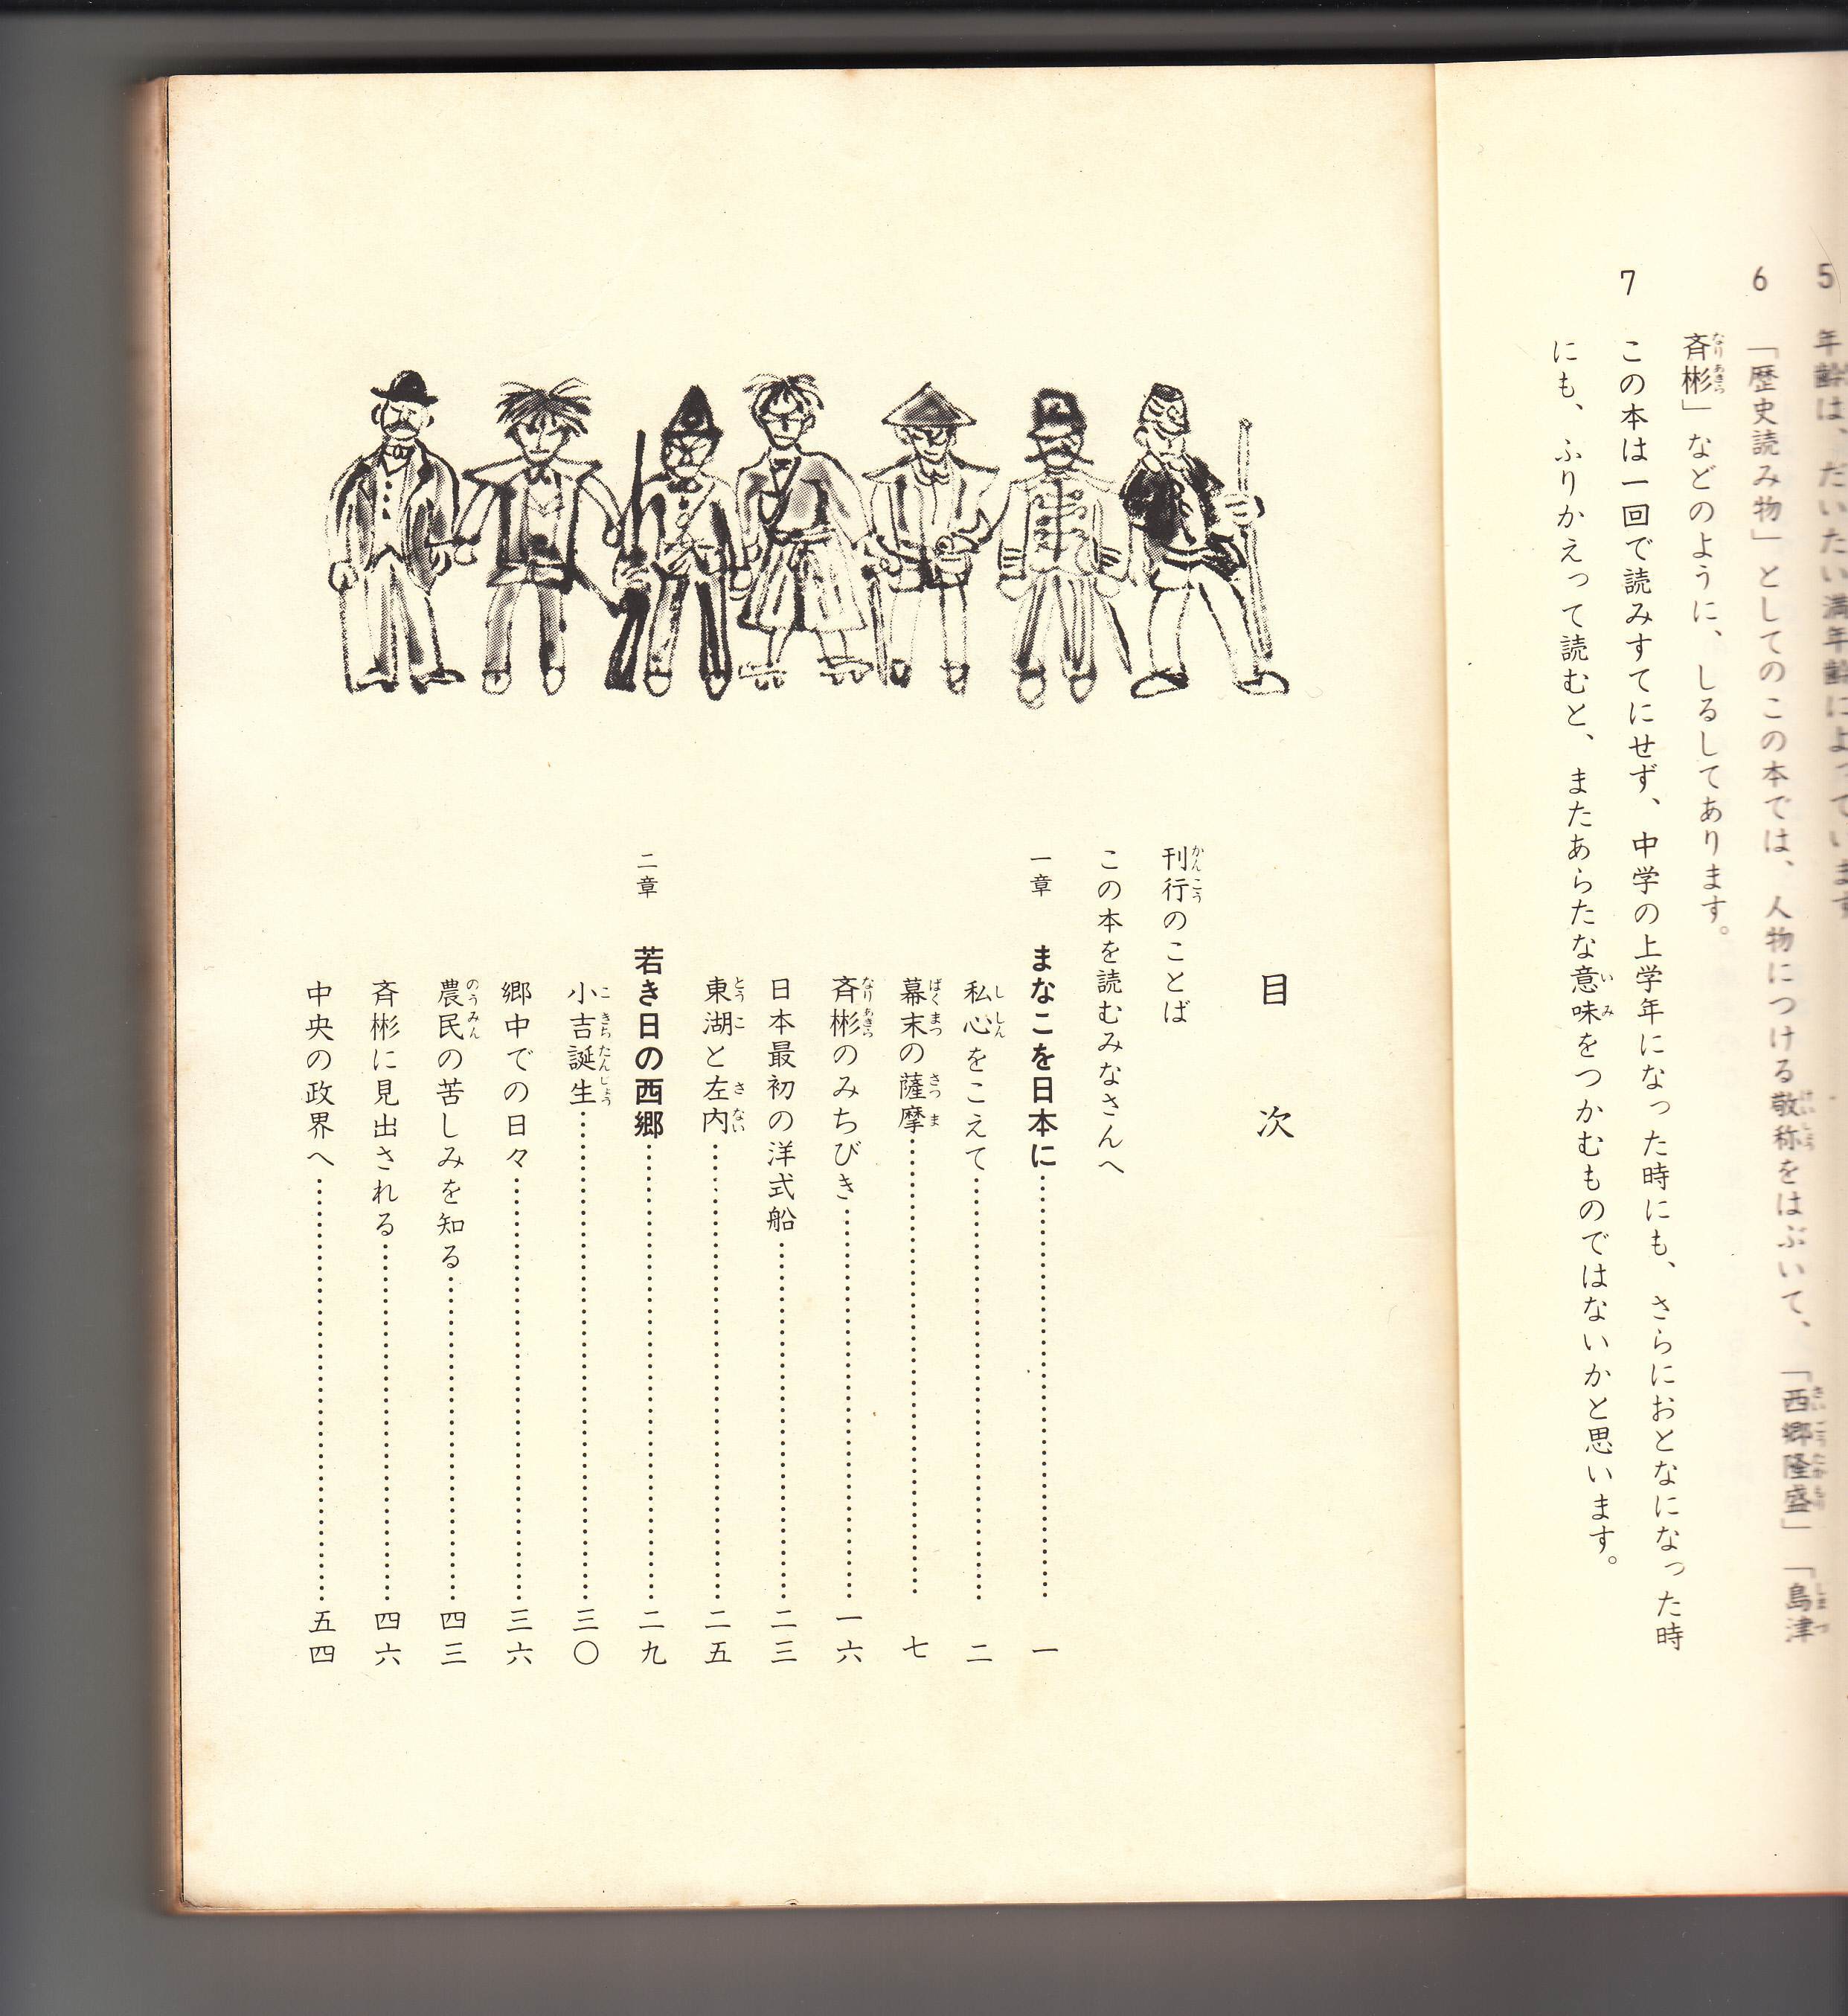 5 年齢は、だいたい満年齢によっています
6 「歴史読み物」としてのこの本では、人物につける敬称をはぶいて、「西郷隆盛」「島津
斉彬」などのように、しるしてあります。
7 この本は一回で読みすてにせず、中学の上学年になった時にも、さらにおとなになった時
にも、ふりかえって読むと、またあらたな意味をつかむものではないかと思います。
目次
刊行のことば
この本を読むみなさんへ
一章 まなこを日本に……一
私心をこえて……二
幕末の薩摩……七
斉彬のみちびき……一六
日本最初の洋式船……二三
東湖と左内……二五
二章 若き日の西郷……二九
小吉誕生……三〇
郷中での日々……三六
農民の苦しみを知る……四三
斉彬に見出される……四六
中央の政界へ……五四